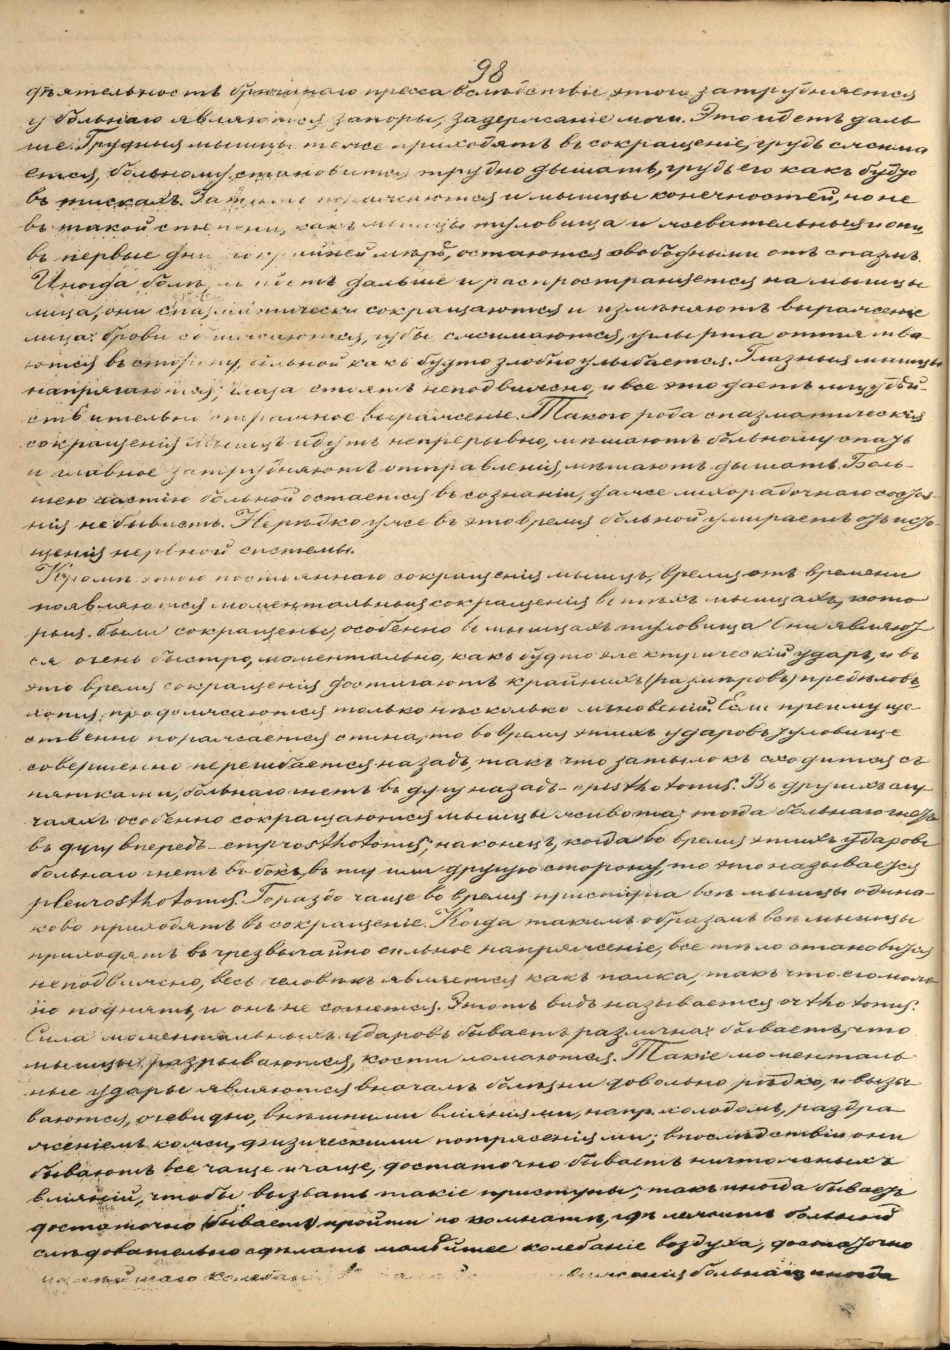 98
дѣятельность брюшнаго пресса вслѣдствіе этого затрудняется
у больнаго являются запоры, задержаніе мочи. Это идетъ даль
ше. Грудныя мышцы тоже приходятъ въ сокращеніе, грудь сжима
ется, больному становится трудно дышать, грудь его какъ будто
въ тискахъ. Затѣмъ поражаются и мышцы конечностей, но не
въ такой степени, какъ мышцы туловища и жевательныя и они,
въ первые дни по крайней мѣрѣ, остаются свободными отъ спазмъ.
Иногда болѣзнь идетъ дальше и распространяется на мышцы
лица, они спазматически сокращаются и измѣняютъ выраженіе
лица: брови сближаются, губы сжимаются, углы рта оттягива
ются въ сторону, больной какъ будто злобно улыбается. Глазныя мышцы
напрягаются, глаза стоятъ неподвижно, и все это даетъ лицу дѣй
ствительно страшное выраженіе. Такого рода спазматическія
сокращенія мышцъ идутъ непрерывно, мѣшаютъ больному спать
и главное затрудняютъ отправленія, мѣшаютъ дышать. Боль-
шею частію больной остается въ сознаніи, даже лихорадочнаго состоя-
нія не бываетъ. Нерѣдко уже въ это время больной умираетъ отъ исто-
щенія нервной системы.
Кромѣ этого постояннаго сокращенія мышцъ, время отъ времени
появляются моментальныя сокращенія въ тѣхъ мышцахъ, кото
рыя были сокращены, особенно въ мышцахъ туловища. Они являют
ся очень быстро, моментально, какъ будто электрическій ударъ, и въ
это время сокращенія достигаютъ крайнихъ (размѣровъ) предѣловъ
хотя продолжаются только нѣсколько мгновеній. Если преимуще-
ственно поражается спина, то во время этихъ ударовъ туловище
совершенно перегибается назадъ, такъ что затылокъ сходится съ
пятками, больнаго гнетъ въ дугу назадъ - opisthotonus. Въ другихъ слу
чаяхъ особенно сокращаются мышцы живота; тогда больнаго гнетъ
въ дугу впередъ - emprosthotonus; наконецъ, когда во время этихъ ударовъ
больнаго гнетъ въ бокъ, въ ту или другую сторону, то это называется
pleurosthotonus. Гораздо чаще во время приступа всѣ мышцы одина-
ково приходятъ въ сокращеніе. Когда такимъ образомъ всѣ мышцы
приходятъ въ чрезвычайно сильное напряженіе, все тѣло становится
неподвижно, весь человѣкъ является какъ палка, такъ что его мож
но поднять, и онъ не согнется. Этотъ видъ называется orthotonus.
Сила моментальныхъ ударовъ бываетъ различна: бываетъ, что
мышцы разрываются, кости ломаются. Такіе моменталь
ные удары являются вначалѣ болѣзни довольно рѣдко, и вызы
ваются, очевидно, внѣшними вліяніями, напр. холодомъ, раздра
женіемъ кожи, физическими потрясеніями; впослѣдствіи они
бываютъ все чаще и чаще, достаточно бываетъ ничтожныхъ
вліяній, чтобы вызвать такіе приступы; такъ иногда бываетъ
достаточно (бываетъ) пройти по комнатѣ, гдѣ лежитъ больной
слѣдовательно сдѣлать малѣйшее колебаніе воздуха, достаточно
больнаго иногда